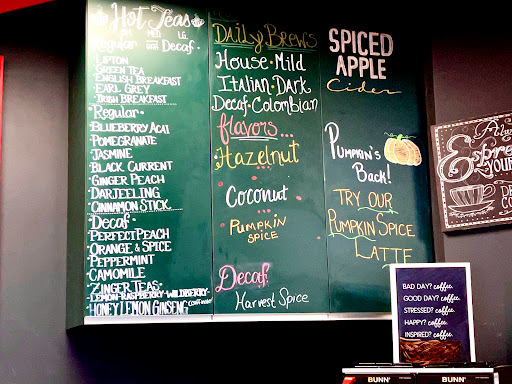 Hot Teas
SM. MED. LG.
Regular Decaf
LIPTON
GREEN TEA
ENGLISH BREAKFAST
EARL GREY
IRISH BREAKFAST
Regular
BLUEBERRY ACAI
POMEGRANATE
JASMINE
BLACK CURRENT
GINGER PEACH
DARJEELING
CINNAMON STICK
Decaf
PERFECT PEACH
ORANGE & SPICE
PEPPERMENT
CAMOMILE
ZINGER TEAS-
LEMON-RASPBERRY-WILDBERRY-
HONEY LEMON GINSENG
DAILY BREWS
House-Mild
Italian-Dark
Decaf-Colombian
flavors...
Hazelnut
Coconut
PUMPKIN
SPICE
Decaf
Harvest Spice
SPICED
APPLE
Cider
PUMPKIN'S
BACK!
TRY OUR
PUMPKIN SPICE
LATTE
BAD DAY? coffee.
GOOD DAY? coffee.
STRESSED? coffee.
HAPPY? coffee.
INSPIRED? coffee.
BUNN BUNN